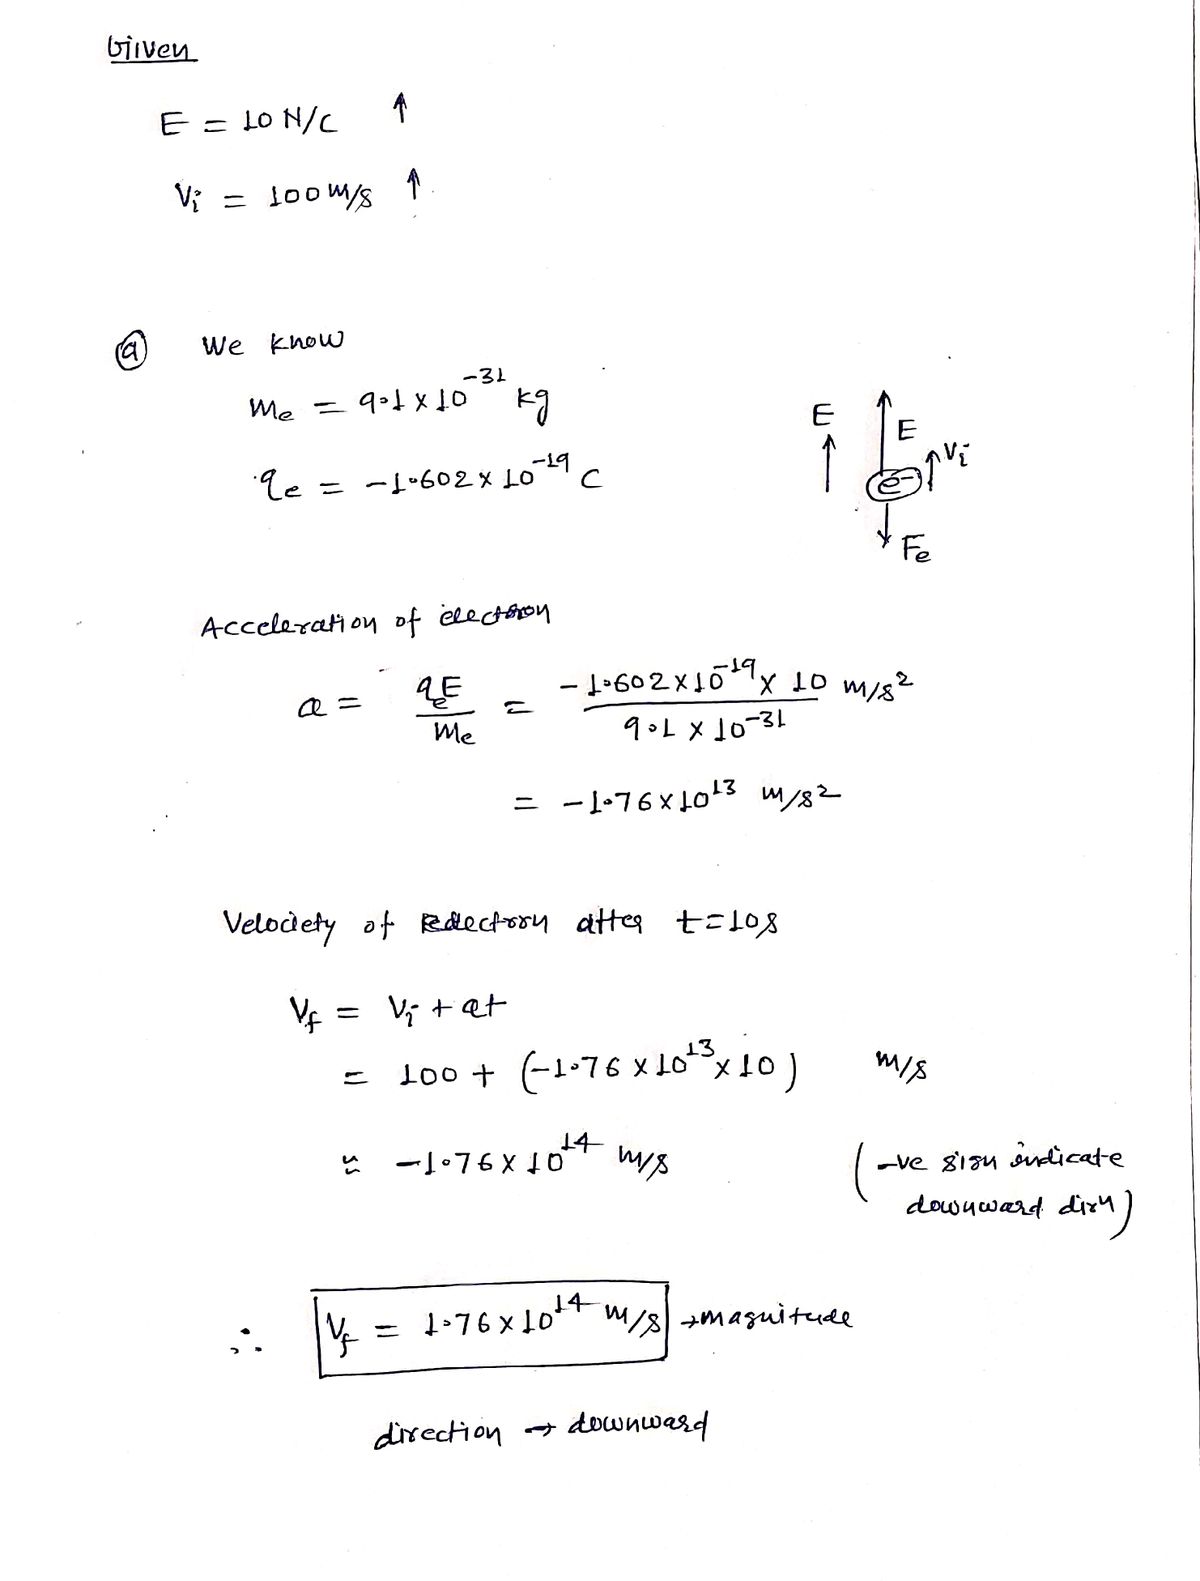 Given
E = 10 N/C ↑
Vi = 100 m/s ↑
(a) We know
me = 9.1 × 10^-31 kg
qe = -1.602 × 10^-19 C
E E
Vi
e-
Fe
Acceleration of electron
a = qeE/me = -1.602 × 10^-19 × 10 / 9.1 × 10^-31 m/s^2
= -1.76 × 10^13 m/s^2
Velociety of electron after t = 10s
Vf = Vi + at
= 100 + (-1.76 × 10^13 × 10) m/s
≈ -1.76 × 10^14 m/s (-ve sign indicate
downward dirn)
∴ Vf = 1.76 × 10^14 m/s → magnitude
direction → downward